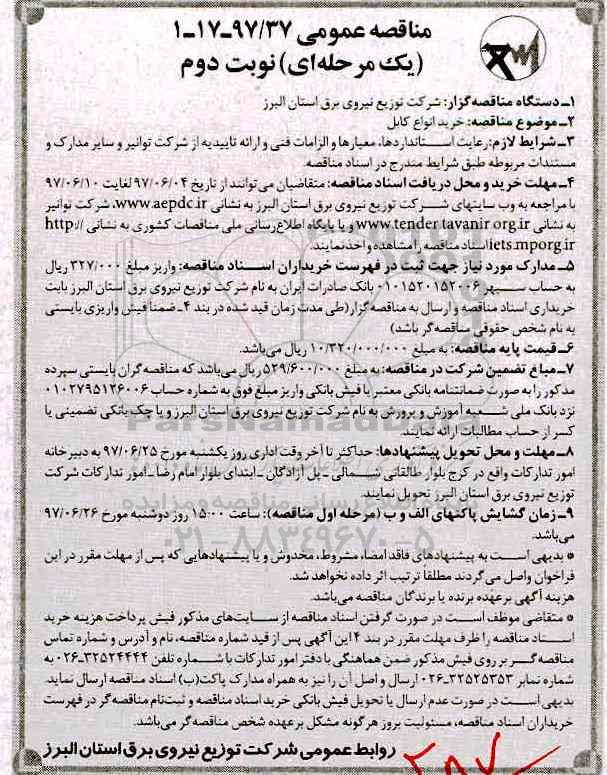 مناقصه عمومی ۹۷/۳۷-۱۷-۱
(یک مرحله‌ای) نوبت دوم
۱ـ دستگاه مناقصه‌گزار: شرکت توزیع نیروی برق استان البرز
۲ـ موضوع مناقصه: خرید انواع کابل
۳ـ شرایط لازم: رعایت استانداردها، معیارها و الزامات فنی و ارائه تاییدیه از شرکت توانیر و سایر مدارک و
مستندات مربوطه طبق شرایط مندرج در اسناد مناقصه.
۴ـ مهلت خرید و محل دریافت اسناد مناقصه: متقاضیان می‌توانند از تاریخ ۹۷/۰۶/۰۴ لغایت ۹۷/۰۶/۱۰
با مراجعه به وب سایتهای شرکت توزیع نیروی برق استان البرز به نشانی www.aepdc.ir، شرکت توانیر
به نشانی www.tender.tavanir.org.ir و یا پایگاه اطلاع‌رسانی ملی مناقصات کشوری به نشانی http://
iets.mporg.ir اسناد مناقصه را مشاهده و اخذ نمایند.
۵ـ مدارک مورد نیاز جهت ثبت در فهرست خریداران اسناد مناقصه: واریز مبلغ ۳۲۷/۰۰۰ ریال
به حساب سپهر ۰۱۰۱۵۲۰۱۵۲۰۰۶ بانک صادرات ایران به نام شرکت توزیع نیروی برق استان البرز بابت
خریداری اسناد مناقصه و ارسال به مناقصه‌گزار (طی مدت زمان قید شده در بند ۴ـ ضمنا فیش واریزی بایستی
به نام شخص حقوقی مناقصه‌گر باشد)
۶ـ قیمت پایه مناقصه: به مبلغ ۱۰/۳۲۰/۰۰۰/۰۰۰ ریال می‌باشد.
۷ـ مبلغ تضمین شرکت در مناقصه: به مبلغ ۵۲۹/۶۰۰/۰۰۰ ریال می‌باشد که مناقصه‌گران بایستی سپرده
مذکور را به صورت ضمانتنامه بانکی معتبر یا فیش بانکی واریز مبلغ فوق به شماره حساب ۰۱۰۲۷۹۵۱۲۶۰۰۶
نزد بانک ملی شعبه آموزش و پرورش به نام شرکت توزیع نیروی برق استان البرز و یا چک بانکی تضمینی یا
کسر از حساب مطالبات ارائه نمایند.
۸ـ مهلت و محل تحویل پیشنهادها: حداکثر تا آخر وقت اداری روز یکشنبه مورخ ۹۷/۰۶/۲۵ به دبیرخانه
امور تدارکات واقع در کرج بلوار طالقانی شمالی ـ پل آزادگان ـ ابتدای بلوار امام رضا ـ امور تدارکات شرکت
توزیع نیروی برق استان البرز تحویل نمایند.
۹ـ زمان گشایش پاکتهای الف و ب (مرحله اول مناقصه): ساعت ۱۵:۰۰ روز دوشنبه مورخ ۹۷/۰۶/۲۶
می‌باشد.
* بدیهی است به پیشنهادهای فاقد امضا، مشروط، مخدوش و یا پیشنهادهایی که پس از مهلت مقرر در این
فراخوان واصل می‌گردند مطلقا ترتیب اثر داده نخواهد شد.
هزینه آگهی برعهده برنده یا برندگان مناقصه می‌باشد.
* متقاضی موظف است در صورت گرفتن اسناد مناقصه از سایت‌های مذکور فیش پرداخت هزینه خرید
اسناد مناقصه را ظرف مهلت مقرر در بند ۴ این آگهی پس از قید شماره مناقصه، نام و آدرس و شماره تماس
مناقصه‌گر بر روی فیش مذکور ضمن هماهنگی با دفتر امور تدارکات با شماره تلفن ۳۲۵۲۴۴۴۴-۰۲۶ به
شماره نمابر ۳۲۵۲۵۳۵۳-۰۲۶ ارسال و اصل آن را نیز به همراه مدارک پاکت (ب) اسناد مناقصه ارسال نماید.
بدیهی است در صورت عدم ارسال یا تحویل فیش بانکی خرید اسناد مناقصه و ثبت‌نام مناقصه‌گر در فهرست
خریداران اسناد مناقصه، مسئولیت بروز هرگونه مشکل برعهده شخص مناقصه‌گر می‌باشد.
روابط عمومی شرکت توزیع نیروی برق استان البرز
ParsNamadData
۰۲۱-۸۸۳۴۹۶۷۰-۵